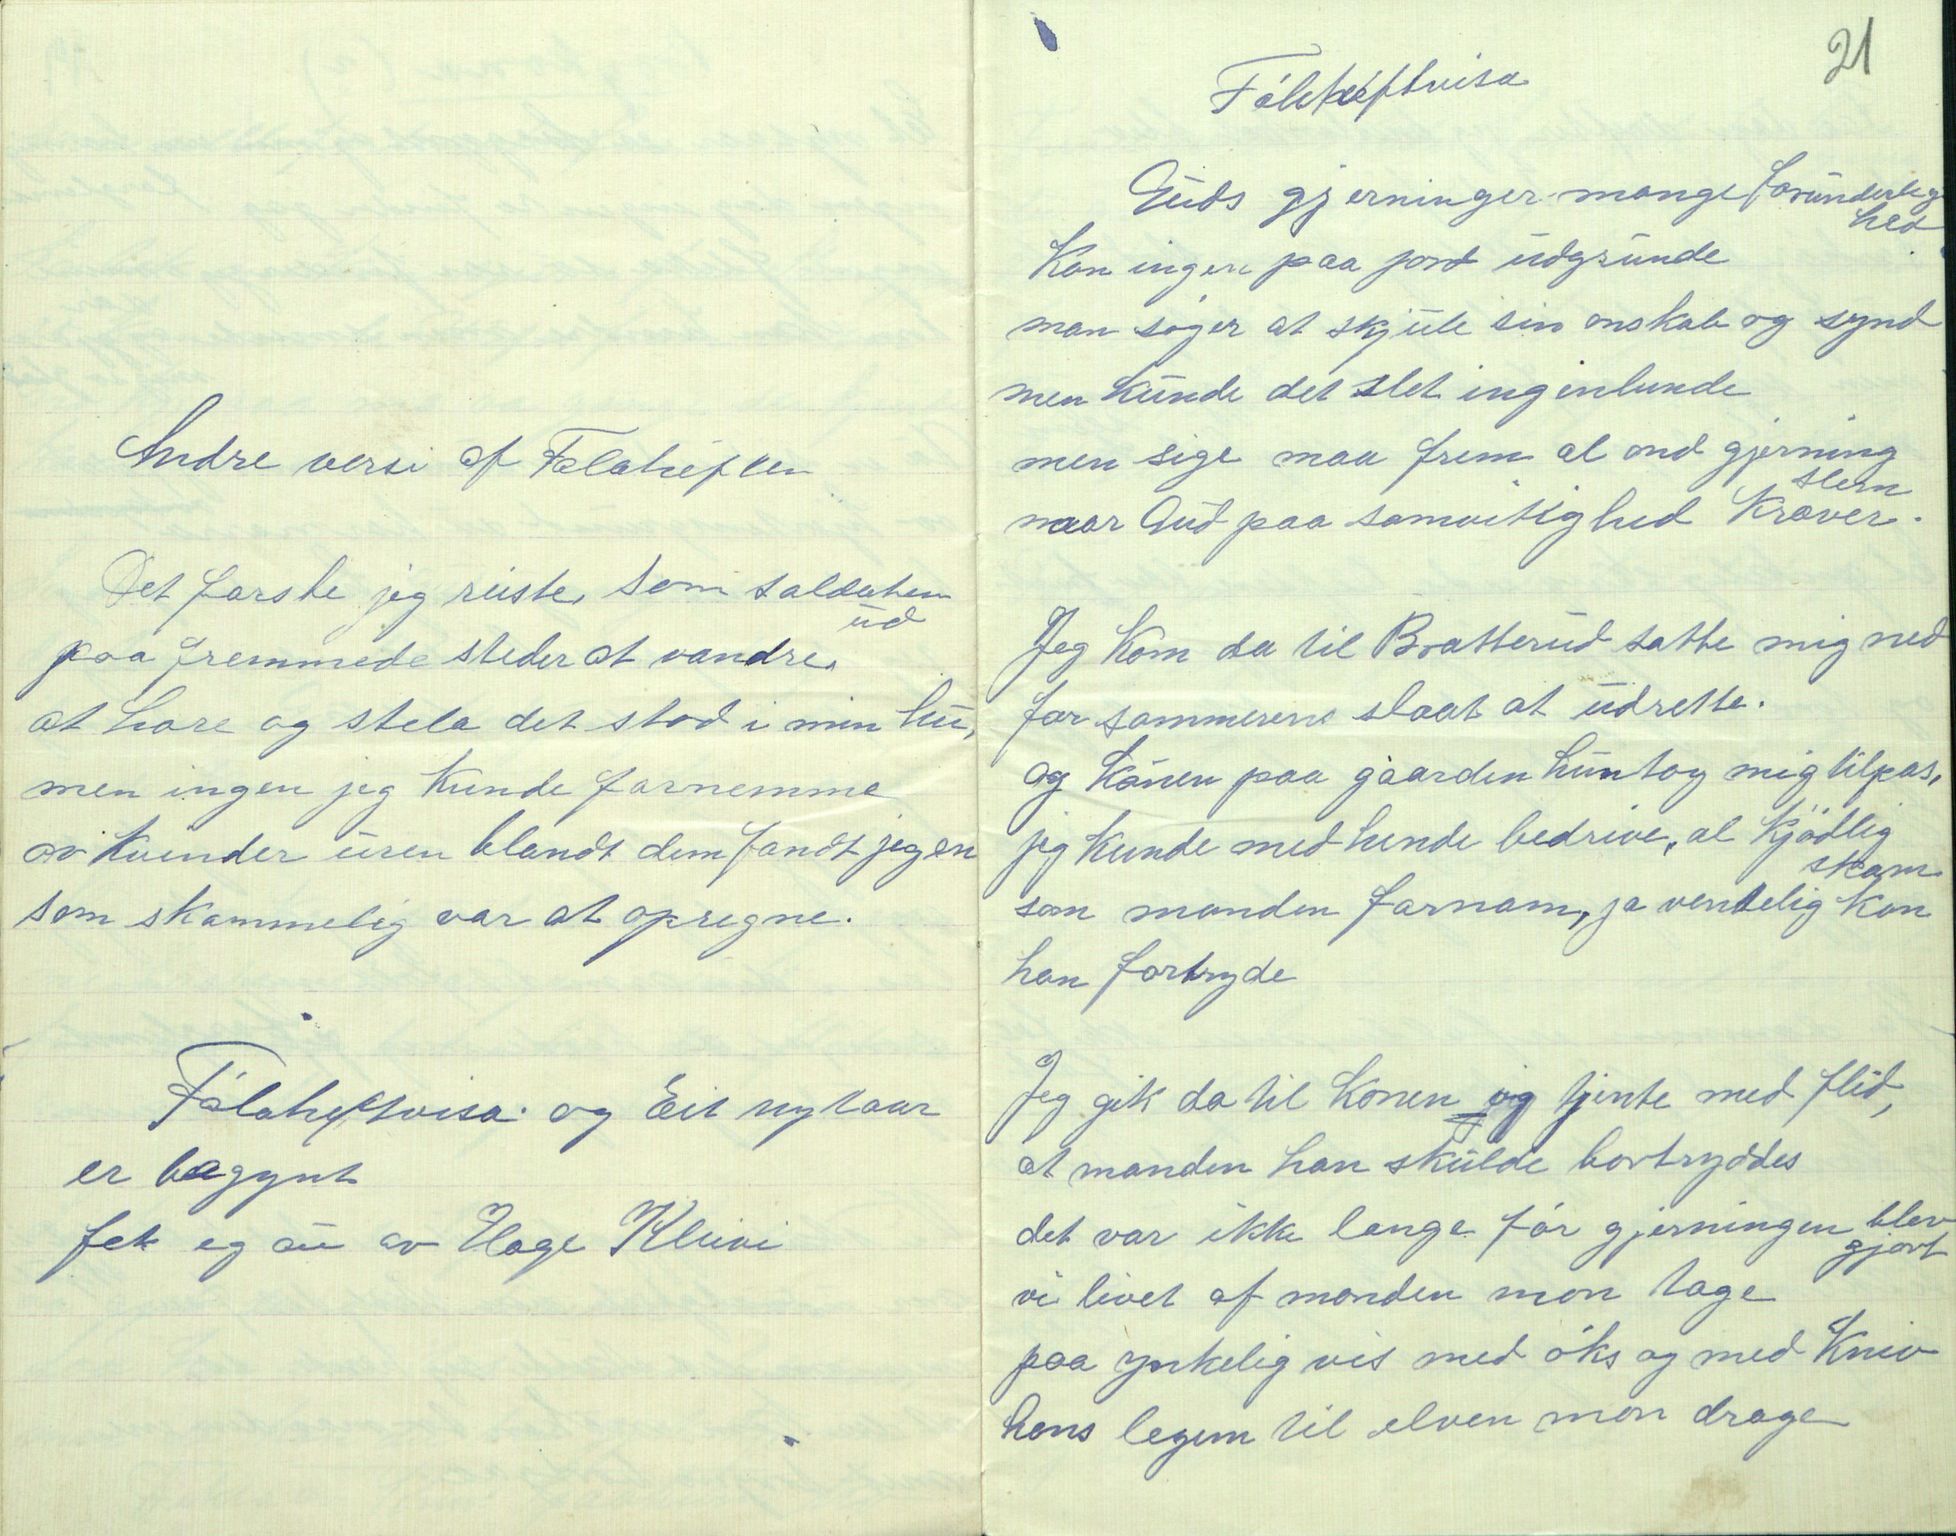 Andre versi af Falaheften
Det farste jeg reiste, som saldaten
ud
paa fremmede steder at vandre,
at hore og stela det stod i min hu,
men ingen jeg kunde farnemme
av kvinder uren blandt dem fandt jeg en
som skammelig var at opregne.
Fólaheftvisa og Eit nytaar
er begynt
fek eg au av Hage Kleivi
21
Fólaheftvisa
Guds gjerninger mange forunderlig
hed
Kan ingen paa jord udgrunde
man søger at skjule sin onskab og synd
men kunde det slet ingenlunde
men sige maa frem al ond gjerning
slem
naar Gud paa samvitighed kræver.
Jeg kom da til Bratterud satte mig ned
for sommeren slaat at udrette.
og konen paa gaarden hun tog mig tilpas,
jeg kunde med hende bedrive, al kjödlig
skam
som manden farnam, ja vendelig kan
han fortryde
Jeg gik da til konen og tjente med flid,
at manden han skulde bortryddes
det var ikke lange fór gjerningen blev
gjort
vi livet af manden mon tage
paa ynkelig vis med óks og med kniv
hans legem til elven mon drage